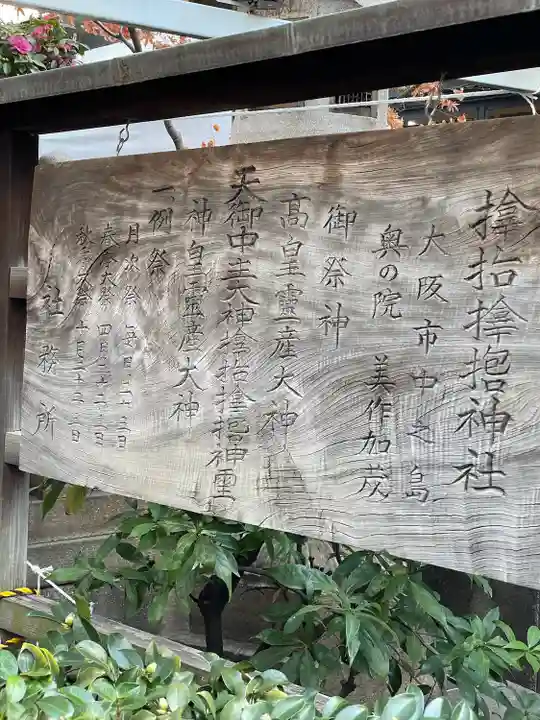 𪮷抬𪮇𫝕神社
大阪市中之島
奥の院 美作加茂
御祭神
高皇靈産大神
天御中主大神𪮷抬𪮇𫝕神
神皇靈産大神
一、例祭
月次祭 毎月二十三日
春季大祭 四月二十二、二十三日
秋季大祭 十月二十二、二十三日
社務所